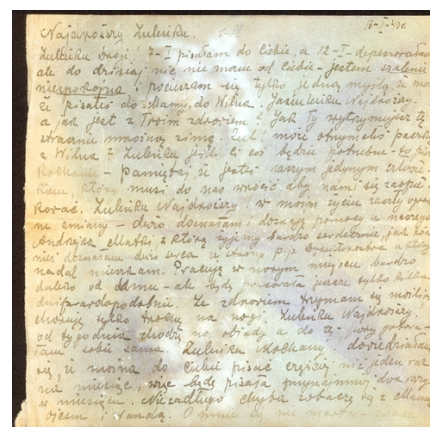 16-I-41r.
Najdroższy Lulenku.
Lulenku drogi! 7-I pisałam do Ciebie, a 12-I- depeszowałam
ale do dzisiaj nic nie mam od Ciebie - jestem szalenie
niespokojna i pocieszam się tylko jedną myślą, że może
że pisałeś do Mamy, do Wilna. Najdroższy,
a jak jest z Twoim zdrowiem? Jak Ty wytrzymujesz tę
straszną mroźną zimę. Lul, może otrzymałeś paczkę
z Wilna? Lulenku jeśli Ci coś będzie potrzebne - to pisz
Kochanie - pamiętaj, że jesteś naszym jedynym człowie-
kiem, który musi do nas wrócić, aby nami się zaopie-
kować. Lulenku Najdroższy, w moim życiu zaszły
zmiany - dużo doznałam i doznaję pomocy u naszego
Andrzeja Matki, z którą żyję się bardzo serdecznie, jak
nadal mieszkam. Pracuję w nowym miejscu bardzo
daleko od domu - ale będę pracowała jeszcze tylko kilka
dni prawdopodobnie. Ze zdrowiem trzymam się możliwie
choruję tylko trochę na nogi. Lulenku Najdroższy,
od tygodnia chodzę na obiady a do tej pory gotowa-
łam sobie sama. Lulenku Kochany dowiedziałam
się, że można do Ciebie pisać częściej niż jeden raz
na miesiąc, więc będę pisała przynajmniej dwa razy
w miesiącu. Niezadługo chyba zobaczę się z Mamą
ojcem i Wandą. O mnie się nie martw